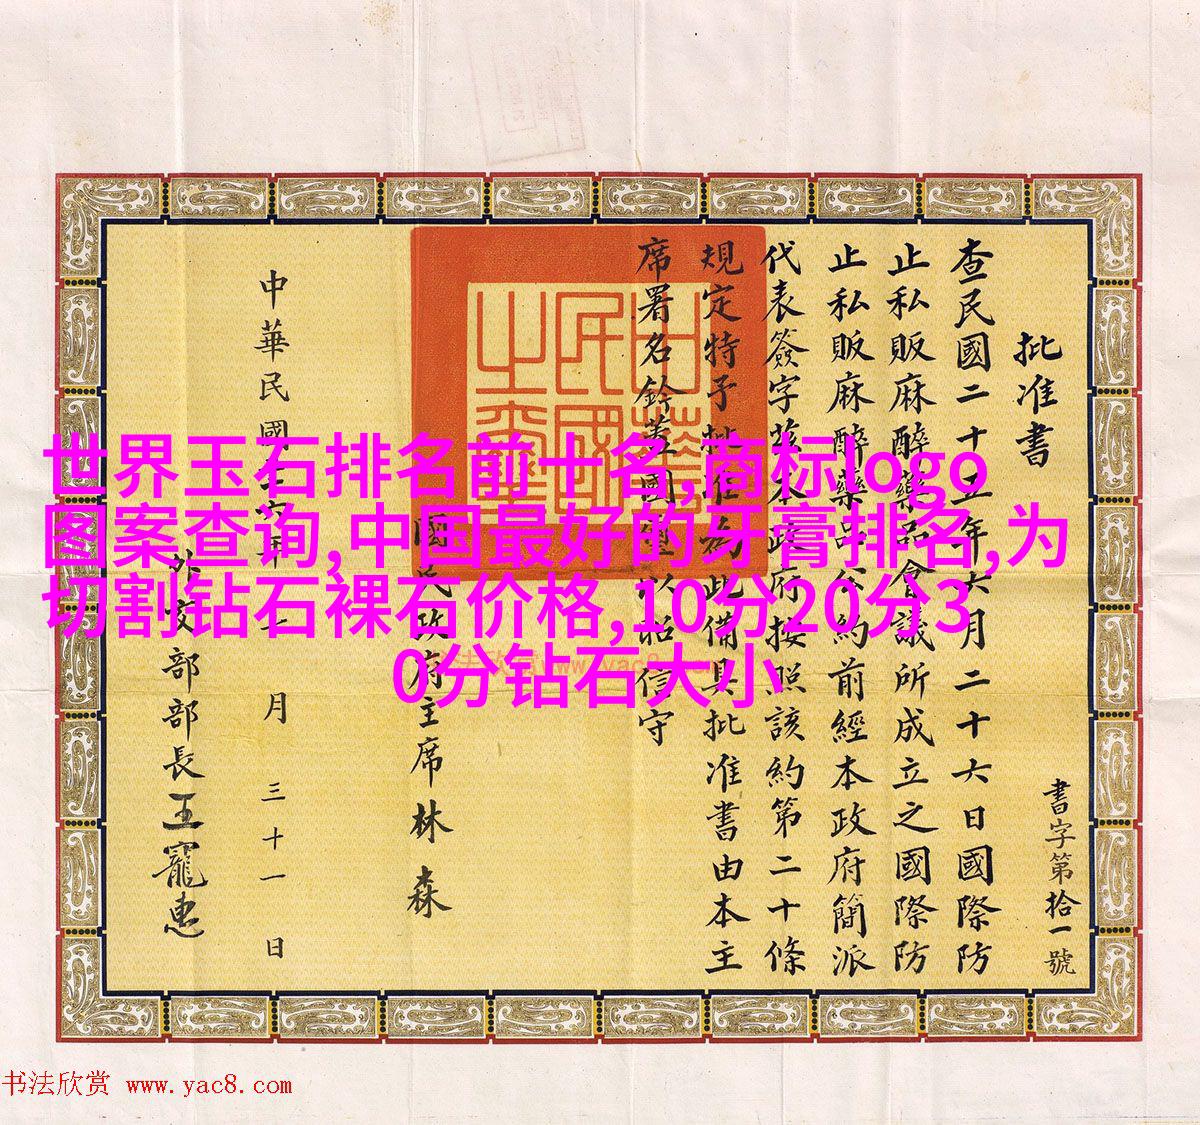 批准書
書字第拾一號
查民國二十五年六月二十六日國際防
止私販麻醉藥品會議所成立之國際防
止私販麻醉藥品公約前經本政府簡派
代表簽字茲本政府按照該約第二十條
規定特予批准為此備具批准書由本主
席署名鈐蓋國璽以昭信守
中華民國之璽
國民政府主席林森
中華民國年月三十一日
外交部部長王寵惠
世界玉石排名前十名,商标logo
图案查询,中国最好的牙膏排名,为
切割钻石裸石价格,10分20分3
0分钻石大小
书法欣赏 www.yac8.com